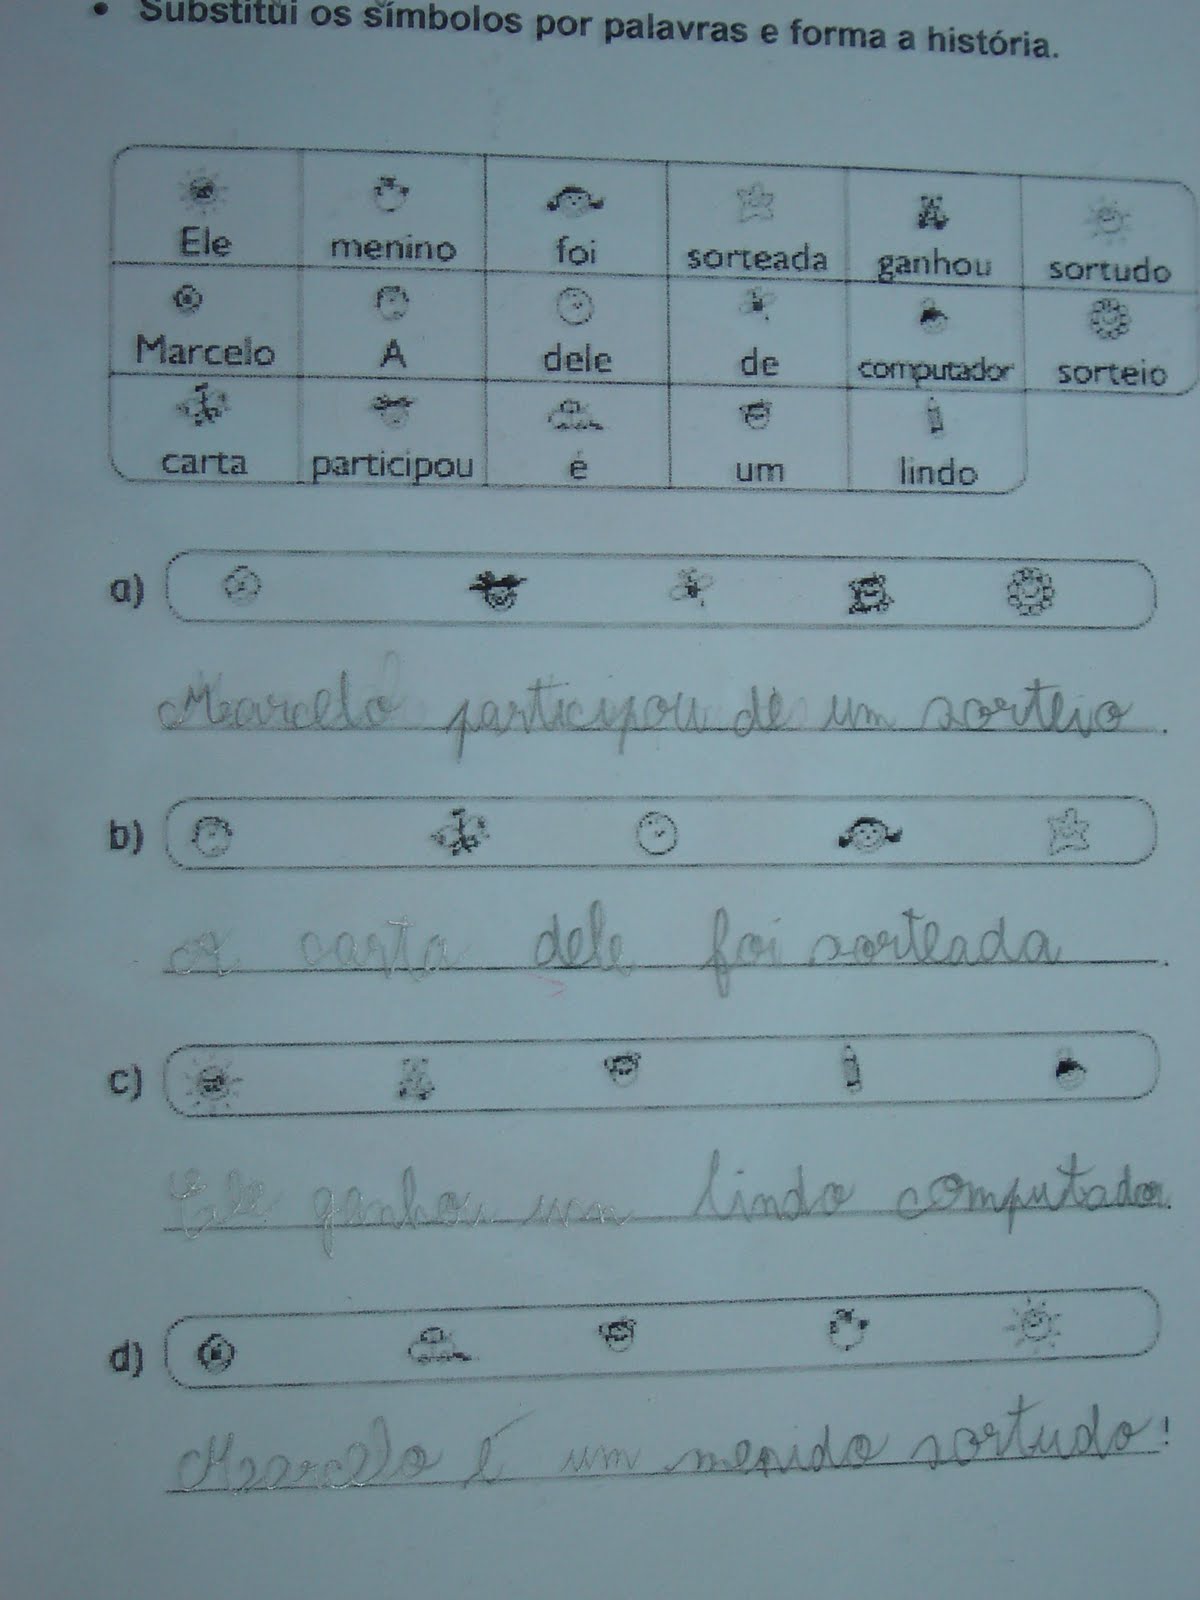 • Substitui os símbolos por palavras e forma a história.
Ele menino foi sorteada ganhou sortudo
Marcelo A dele de computador sorteio
carta participou é um lindo
a)
Marcelo participou de um sorteio.
b)
A carta dele foi sorteada.
c)
Ele ganhou um lindo computador.
d)
Marcelo é um menido sortudo!